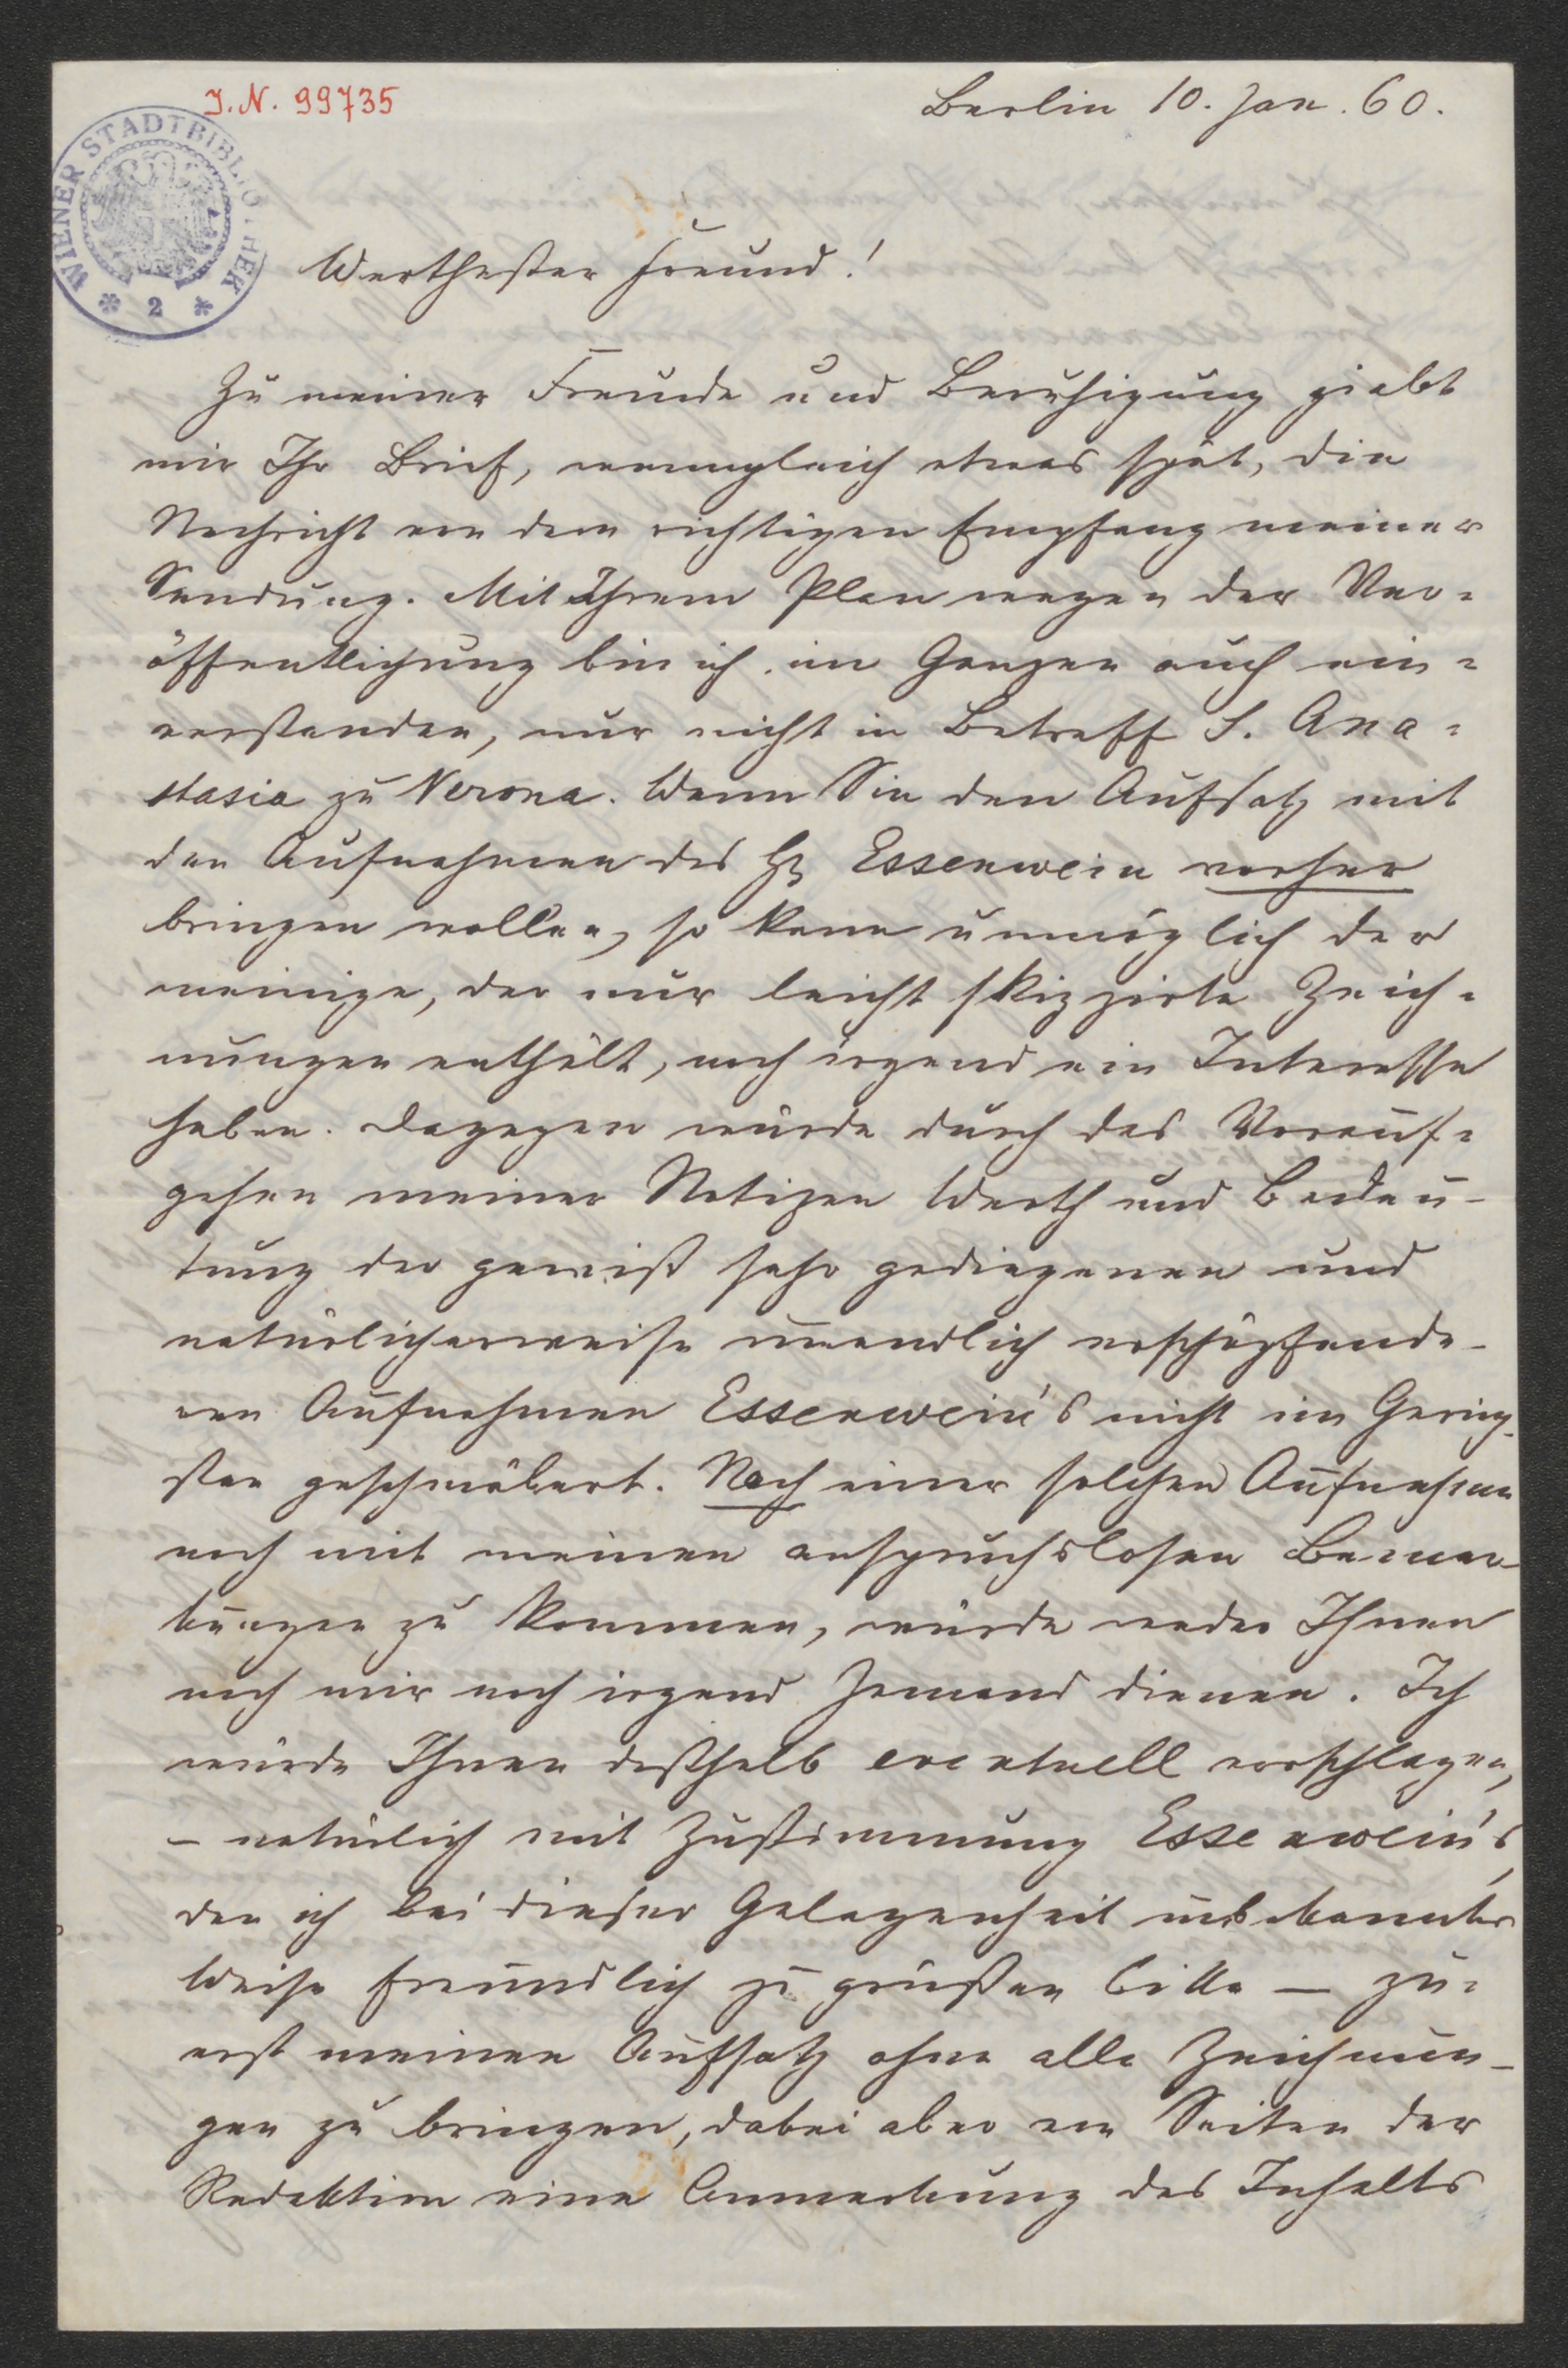 I. N. 99735
Berlin 10. Jan. 60.
WIENER STADTBIBLIOTHEK
* 2 *
Werthester Freund!
Zu meiner Freude und Beruhigung giebt
mir Ihr Brief, wenngleich etwas spät, die
Nachricht von dem richtigen Empfang meiner
Sendung. Mit Ihrem Plan wegen der Ver=
öffentlichung bin ich im Ganzen auch ein=
verstanden, nur nicht in Betreff S. Ana=
stasia zu Verona. Wenn Sie den Aufsatz mit
den Aufnahmen des H Essenwein vorher
bringen wollen, so kann unmöglich der
meinige, der nur leicht skizzirte Zeich=
nungen enthält, noch irgend ein Interesse
haben. Dagegen würde durch das Vorauf=
gehen meiner Notizen Werth und Bedeu-
tung der gewiß sehr gediegenen und
natürlicherweise unendlich erschöpfende-
ren Aufnahmen Essenwein's nicht im Gering-
sten geschmälert. Nach einer solchen Aufnahme
noch mit meinen anspruchslosen Bemer-
kungen zu kommen, würde weder Ihnen
noch mir noch irgend Jemand dienen. Ich
würde Ihnen deßhalb eventuell vorschlagen,
– natürlich mit Zustimmung Essenwein's,
den ich bei dieser Gelegenheit unbekannter
Weise freundlich zu grüßen bitte — zu=
erst meinen Aufsatz ohne alle Zeichnun-
gen zu bringen, dabei aber von Seiten der
Redaktion eine Anmerkung des Inhalts